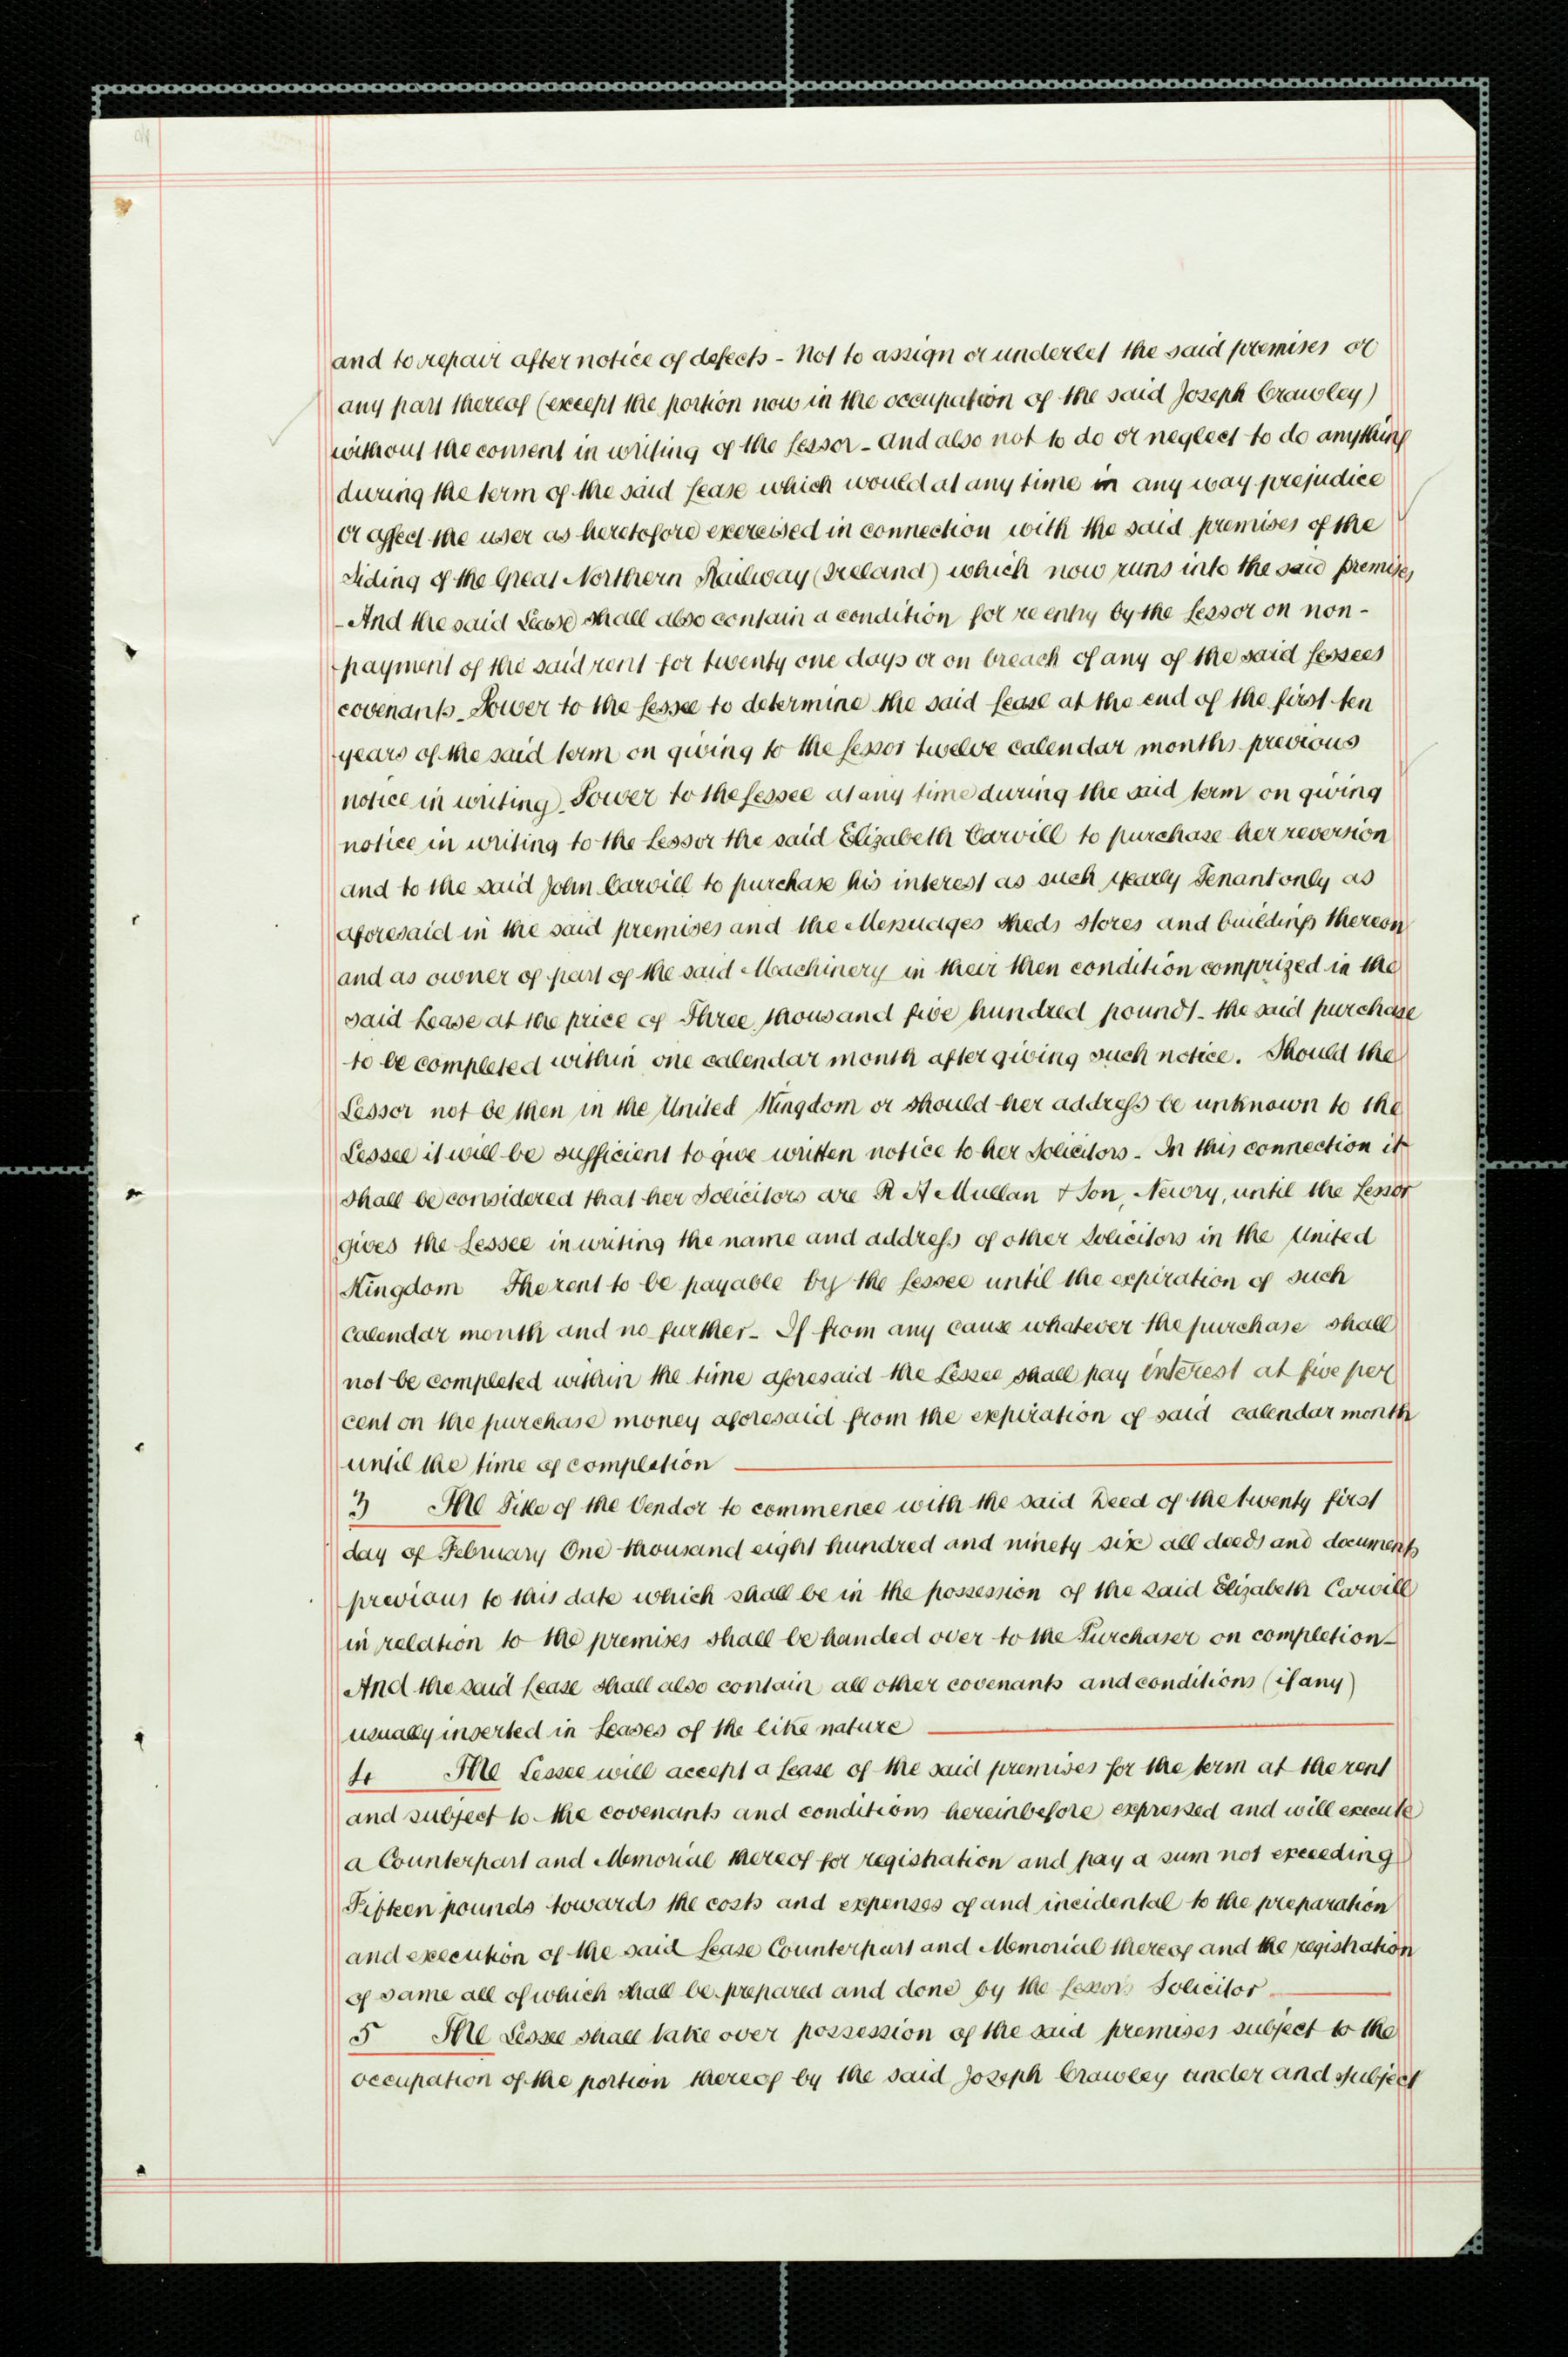 and to repair after notice of defects - Not to assign or underlet the said premises or
any part thereof (except the portion now in the occupation of the said Joseph Crawley)
without the consent in writing of the Lessor - And also not to do or neglect to do anything
during the term of the said Lease which would at any time in any way prejudice
or affect the user as heretofore exercised in connection with the said premises of the
Siding of the Great Northern Railway (Ireland) which now runs into the said premises
- And the said Lease shall also contain a condition for re entry by the Lessor on non-
payment of the said rent for twenty one days or on breach of any of the said Lessees
covenants - Power to the Lessee to determine the said Lease at the end of the first ten
years of the said term on giving to the Lessor twelve calendar months previous
notice in writing - Power to the Lessee at any time during the said term on giving
notice in writing to the Lessor the said Elizabeth Carvill to purchase her reversion
and to the said John Carvill to purchase his interest as such yearly Tenant only as
aforesaid in the said premises and the Messuages sheds stores and buildings thereon
and as owner of part of the said Machinery in their then condition comprized in the
said Lease at the price of Three thousand five hundred pounds - the said purchase
to be completed within one calendar month after giving such notice. Should the
Lessor not be then in the United Kingdom or should her address be unknown to the
Lessee it will be sufficient to give written notice to her Solicitors - In this connection it
shall be considered that her Solicitors are R A Mullan & Son, Newry, until the Lessor
gives the Lessee in writing the name and address of other Solicitors in the United
Kingdom The rent to be payable by the Lessee until the expiration of such
calendar month and no further - If from any cause whatever the purchase shall
not be completed within the time aforesaid the Lessee shall pay interest at five per
cent on the purchase money aforesaid from the expiration of said calendar month
until the time of completion
3 The Title of the Vendor to commence with the said Deed of the twenty first
day of February One thousand eight hundred and ninety six all deeds and documents
previous to this date which shall be in the possession of the said Elizabeth Carvill
in relation to the premises shall be handed over to the Purchaser on completion -
And the said Lease shall also contain all other covenants and conditions (if any)
usually inserted in Leases of the like nature
4 The Lessee will accept a Lease of the said premises for the term at the rent
and subject to the covenants and conditions hereinbefore expressed and will execute
a Counterpart and Memorial thereof for registration and pay a sum not exceeding
Fifteen pounds towards the costs and expenses of and incidental to the preparation
and execution of the said Lease Counterpart and Memorial thereof and the registration
of same all of which shall be prepared and done by the Lessors Solicitor
5 The Lessee shall take over possession of the said premises subject to the
occupation of the portion thereof by the said Joseph Crawley under and subject